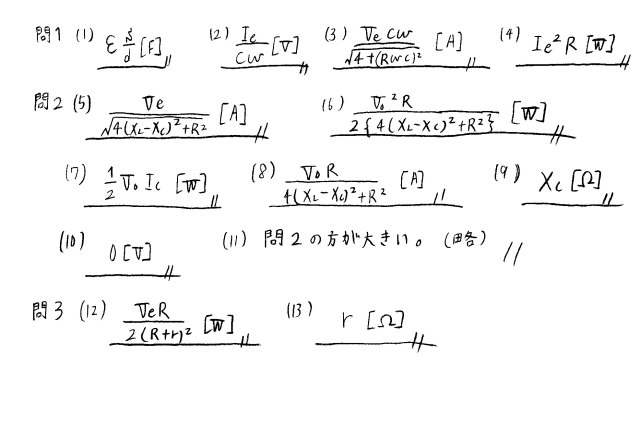 問1 (1) ε S/d [F] (2) Ie/Cω [V] (3) VeCω/√4+(RωC)² [A] (4) Ie²R [W]
問2 (5) Ve/√4(XL-XC)²+R² [A] (6) V₀²R/2{4(XL-XC)²+R²} [W]
(7) 1/2 V₀Ic [W] (8) V₀R/4(XL-XC)²+R² [A] (9) XL [Ω]
(10) 0[V] (11) 問2の方が大きい。(略)
問3 (12) VeR/2(R+r)² [W] (13) r [Ω]